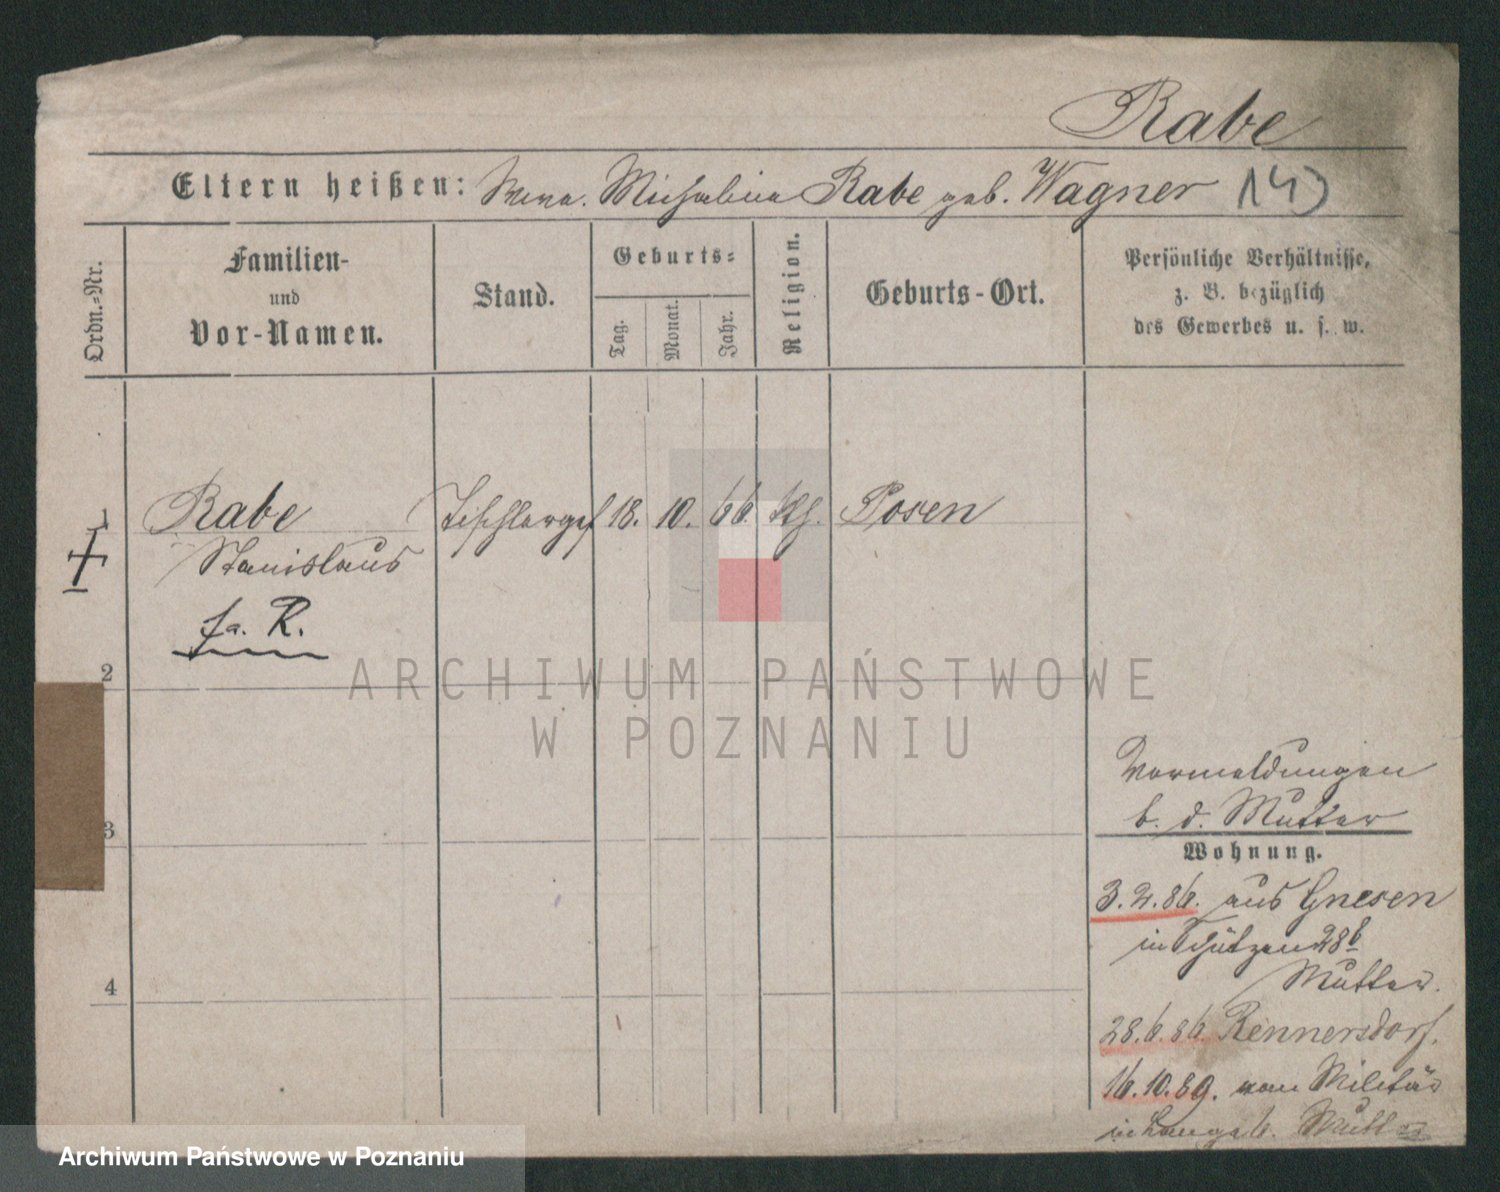 Rabe
Eltern heißen: Wwe. Michalina Rabe geb. Wagner 14)
Ordn.-Nr.
Familien-
und
Vor-Namen.
Stand.
Geburts-
Tag.
Monat.
Jahr.
Religion.
Geburts-Ort.
Persönliche Verhältnisse,
z. B. bezüglich
des Gewerbes u. s. w.
1 Rabe Tischlerges 18. 10. 66 Kh. Posen
Stanislaus
fa. R.
2
3
4
Vormeldungen
b. d. Mutter
Wohnung.
3.2.86. aus Gnesen
in Schützen 28b
Mutter.
28.6.86. Rennersdorf.
16.10.89. vom Militär
in Langest. Mutter
ARCHIWUM PAŃSTWOWE
W POZNANIU
Archiwum Państwowe w Poznaniu